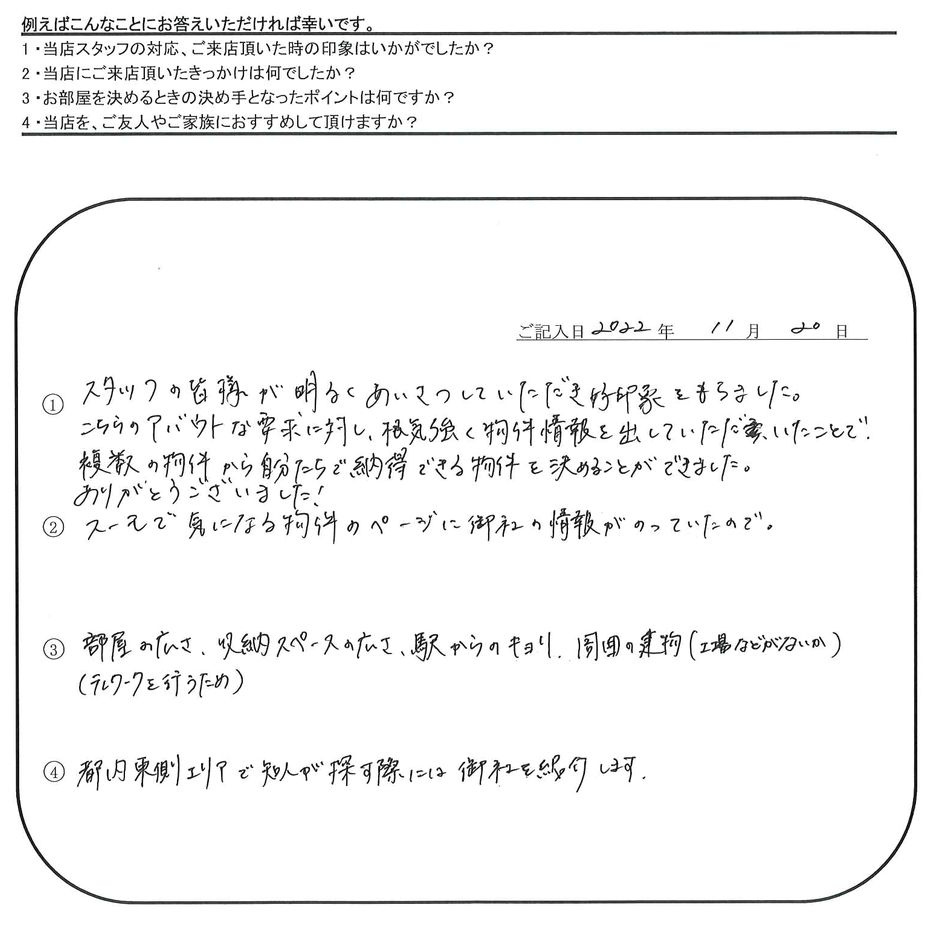 例えばこんなことにお答えいただければ幸いです。
1・当店スタッフの対応、ご来店頂いた時の印象はいかがでしたか？
2・当店にご来店頂いたきっかけは何でしたか？
3・お部屋を決めるときの決め手となったポイントは何ですか？
4・当店を、ご友人やご家族におすすめして頂けますか？
ご記入日 2022 年 11 月 20 日
① スタッフの皆様が明るくあいさつしていただき好印象をもちました。
こちらのアバウトな要求に対し、根気強く物件情報を出していただいたことで、
複数の物件から自分たちで納得できる物件を決めることができました。
ありがとうございました！
② スーモで気になる物件のページに御社の情報がのっていたので。
③ 部屋の広さ、収納スペースの広さ、駅からのキョリ、周囲の建物(工場などがないか)
(テレワークを行うため)
④ 都内東側エリアで知人が探す際には御社を紹介します。